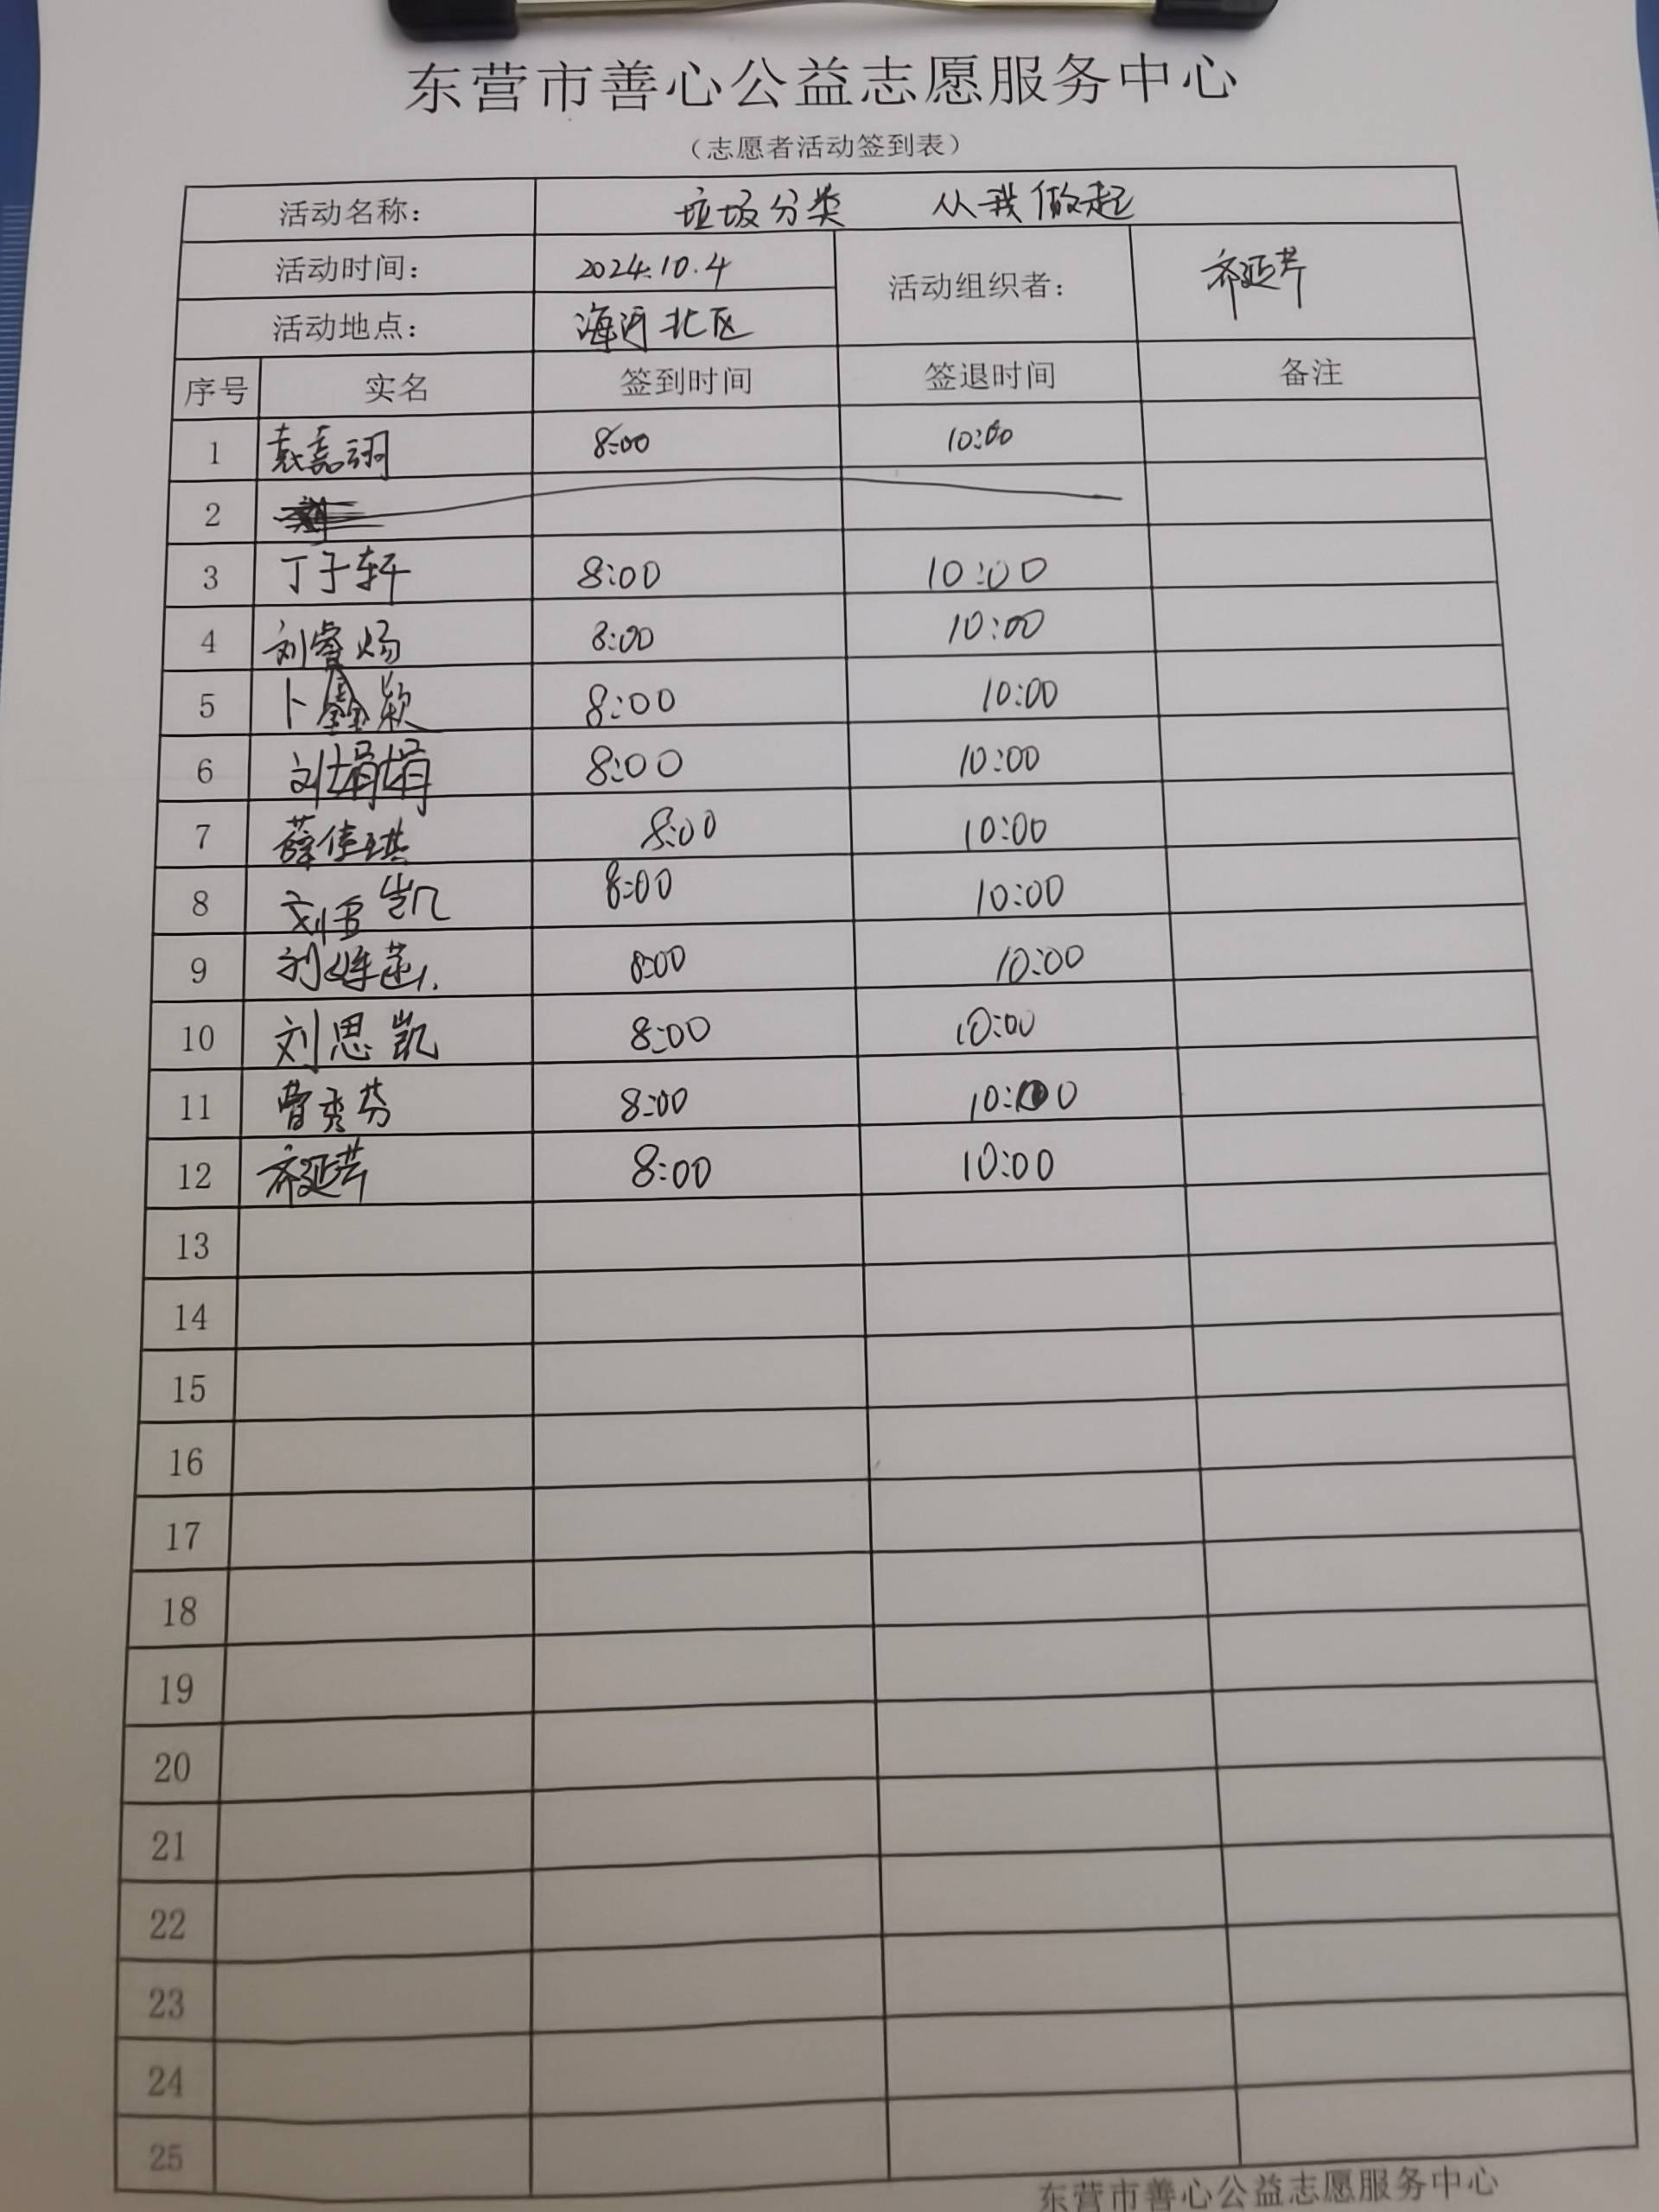 东营市善心公益志愿服务中心
（志愿者活动签到表）
活动名称： 垃圾分类 从我做起
活动时间： 2024.10.4 活动组织者： 齐延芹
活动地点： 海河北区
序号 实名 签到时间 签退时间 备注
1 袁嘉翊 8:00 10:00
2
3 丁子轩 8:00 10:00
4 刘睿炀 8:00 10:00
5 卜鑫颖 8:00 10:00
6 刘娟娟 8:00 10:00
7 薛佳琪 8:00 10:00
8 刘 凯 8:00 10:00
9 刘 8:00 10:00
10 刘思凯 8:00 10:00
11 曹秀芬 8:00 10:00
12 齐延芹 8:00 10:00
13
14
15
16
17
18
19
20
21
22
23
24
25
东营市善心公益志愿服务中心